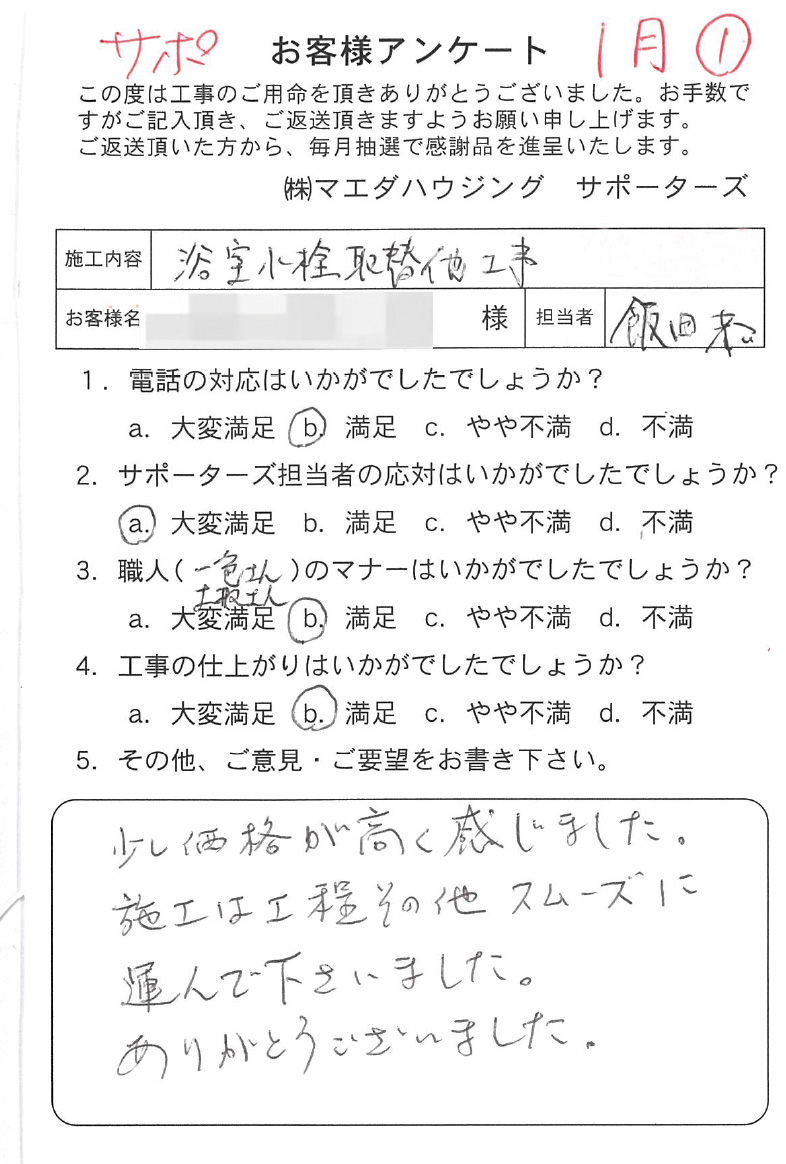 サポ お客様アンケート 1月 ①
この度は工事のご用命を頂きありがとうございました。お手数で
すがご記入頂き、ご返送頂きますようお願い申し上げます。
ご返送頂いた方から、毎月抽選で感謝品を進呈いたします。
㈱マエダハウジング サポーターズ
施工内容 浴室水栓取替他工事
お客様名 様 担当者 飯田
1. 電話の対応はいかがでしたでしょうか？
a. 大変満足 b. 満足 c. やや不満 d. 不満
2. サポーターズ担当者の応対はいかがでしたでしょうか？
a. 大変満足 b. 満足 c. やや不満 d. 不満
3. 職人(一色さん)のマナーはいかがでしたでしょうか？
さん
a. 大変満足 b. 満足 c. やや不満 d. 不満
4. 工事の仕上がりはいかがでしたでしょうか？
a. 大変満足 b. 満足 c. やや不満 d. 不満
5. その他、ご意見・ご要望をお書き下さい。
少し価格が高く感じました。
施工は工程その他スムーズに
運んで下さいました。
ありがとうございました。